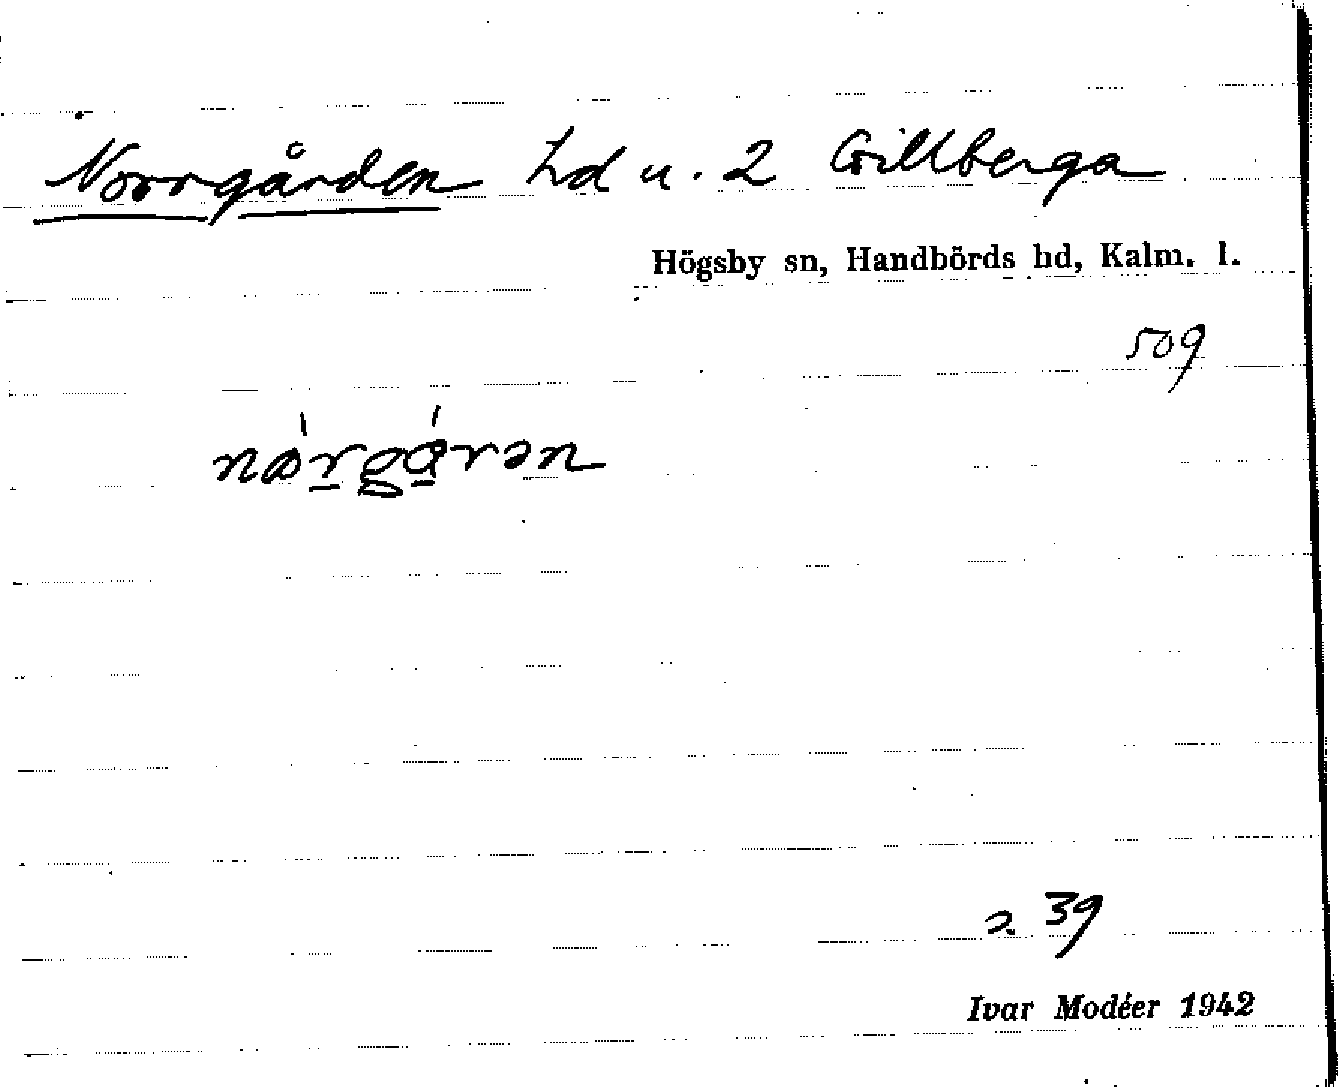 Norrgården hd u. 2 Gillberga
Högsby sn, Handbörds hd, Kalm. l.
509
s. 39
Ivar Modéer 1942